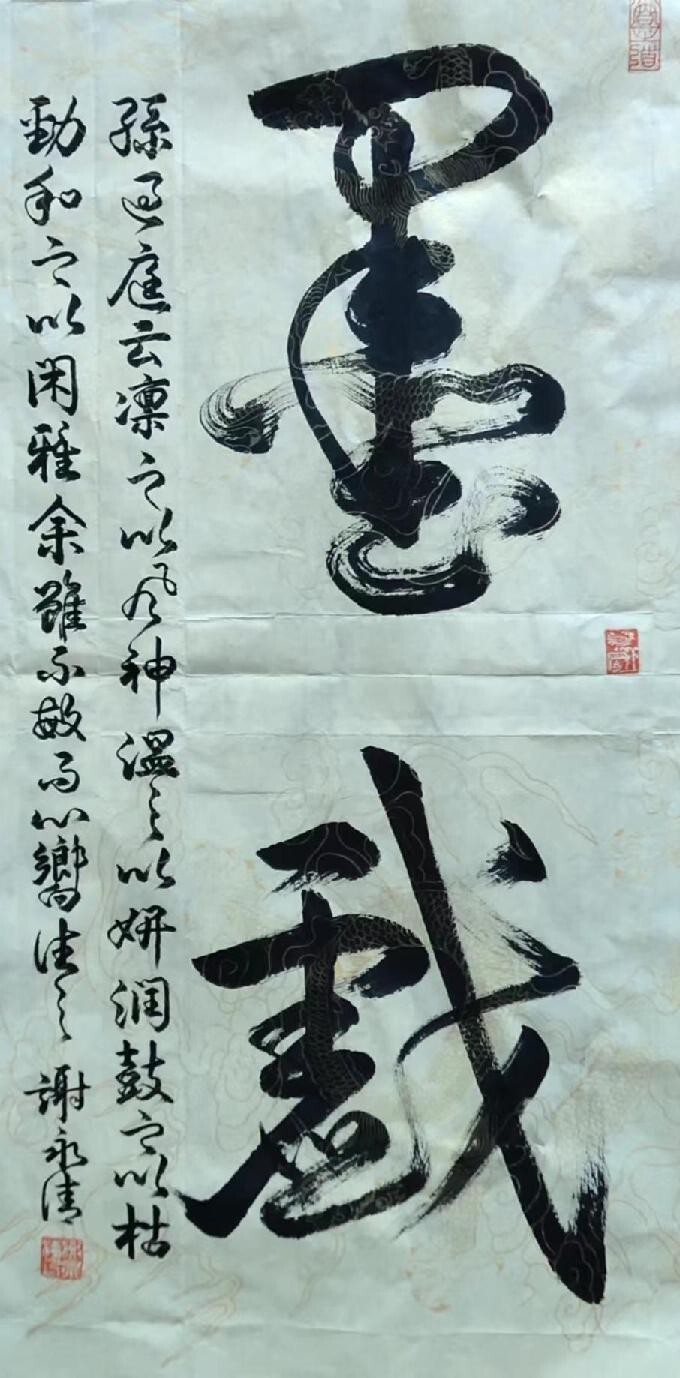 尊道
墨戲
孫過庭云凛之以風神溫之以妍潤鼓之以枯
勁和之以閑雅余雖不敏而心嚮往之 謝永清